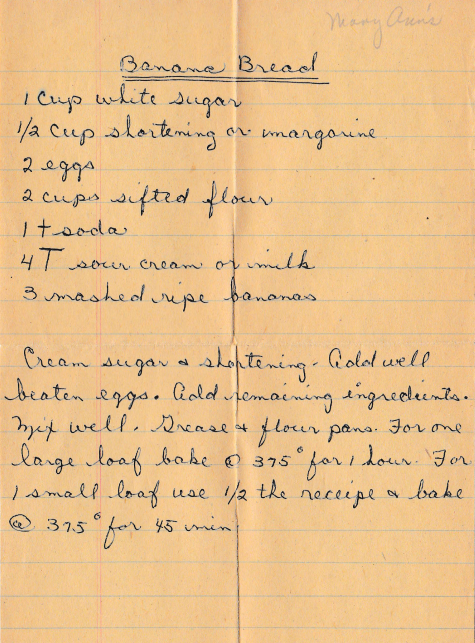 Mary Ann's
Banana Bread
1 cup white sugar
1/2 cup shortening or margarine
2 eggs
2 cups sifted flour
1 t soda
4 T sour cream or milk
3 mashed ripe bananas
Cream sugar & shortening. Add well
beaten eggs. Add remaining ingredients.
Mix well. Grease & flour pans. For one
large loaf bake @ 375° for 1 hour. For
1 small loaf use 1/2 the receipe & bake
@ 375° for 45 min